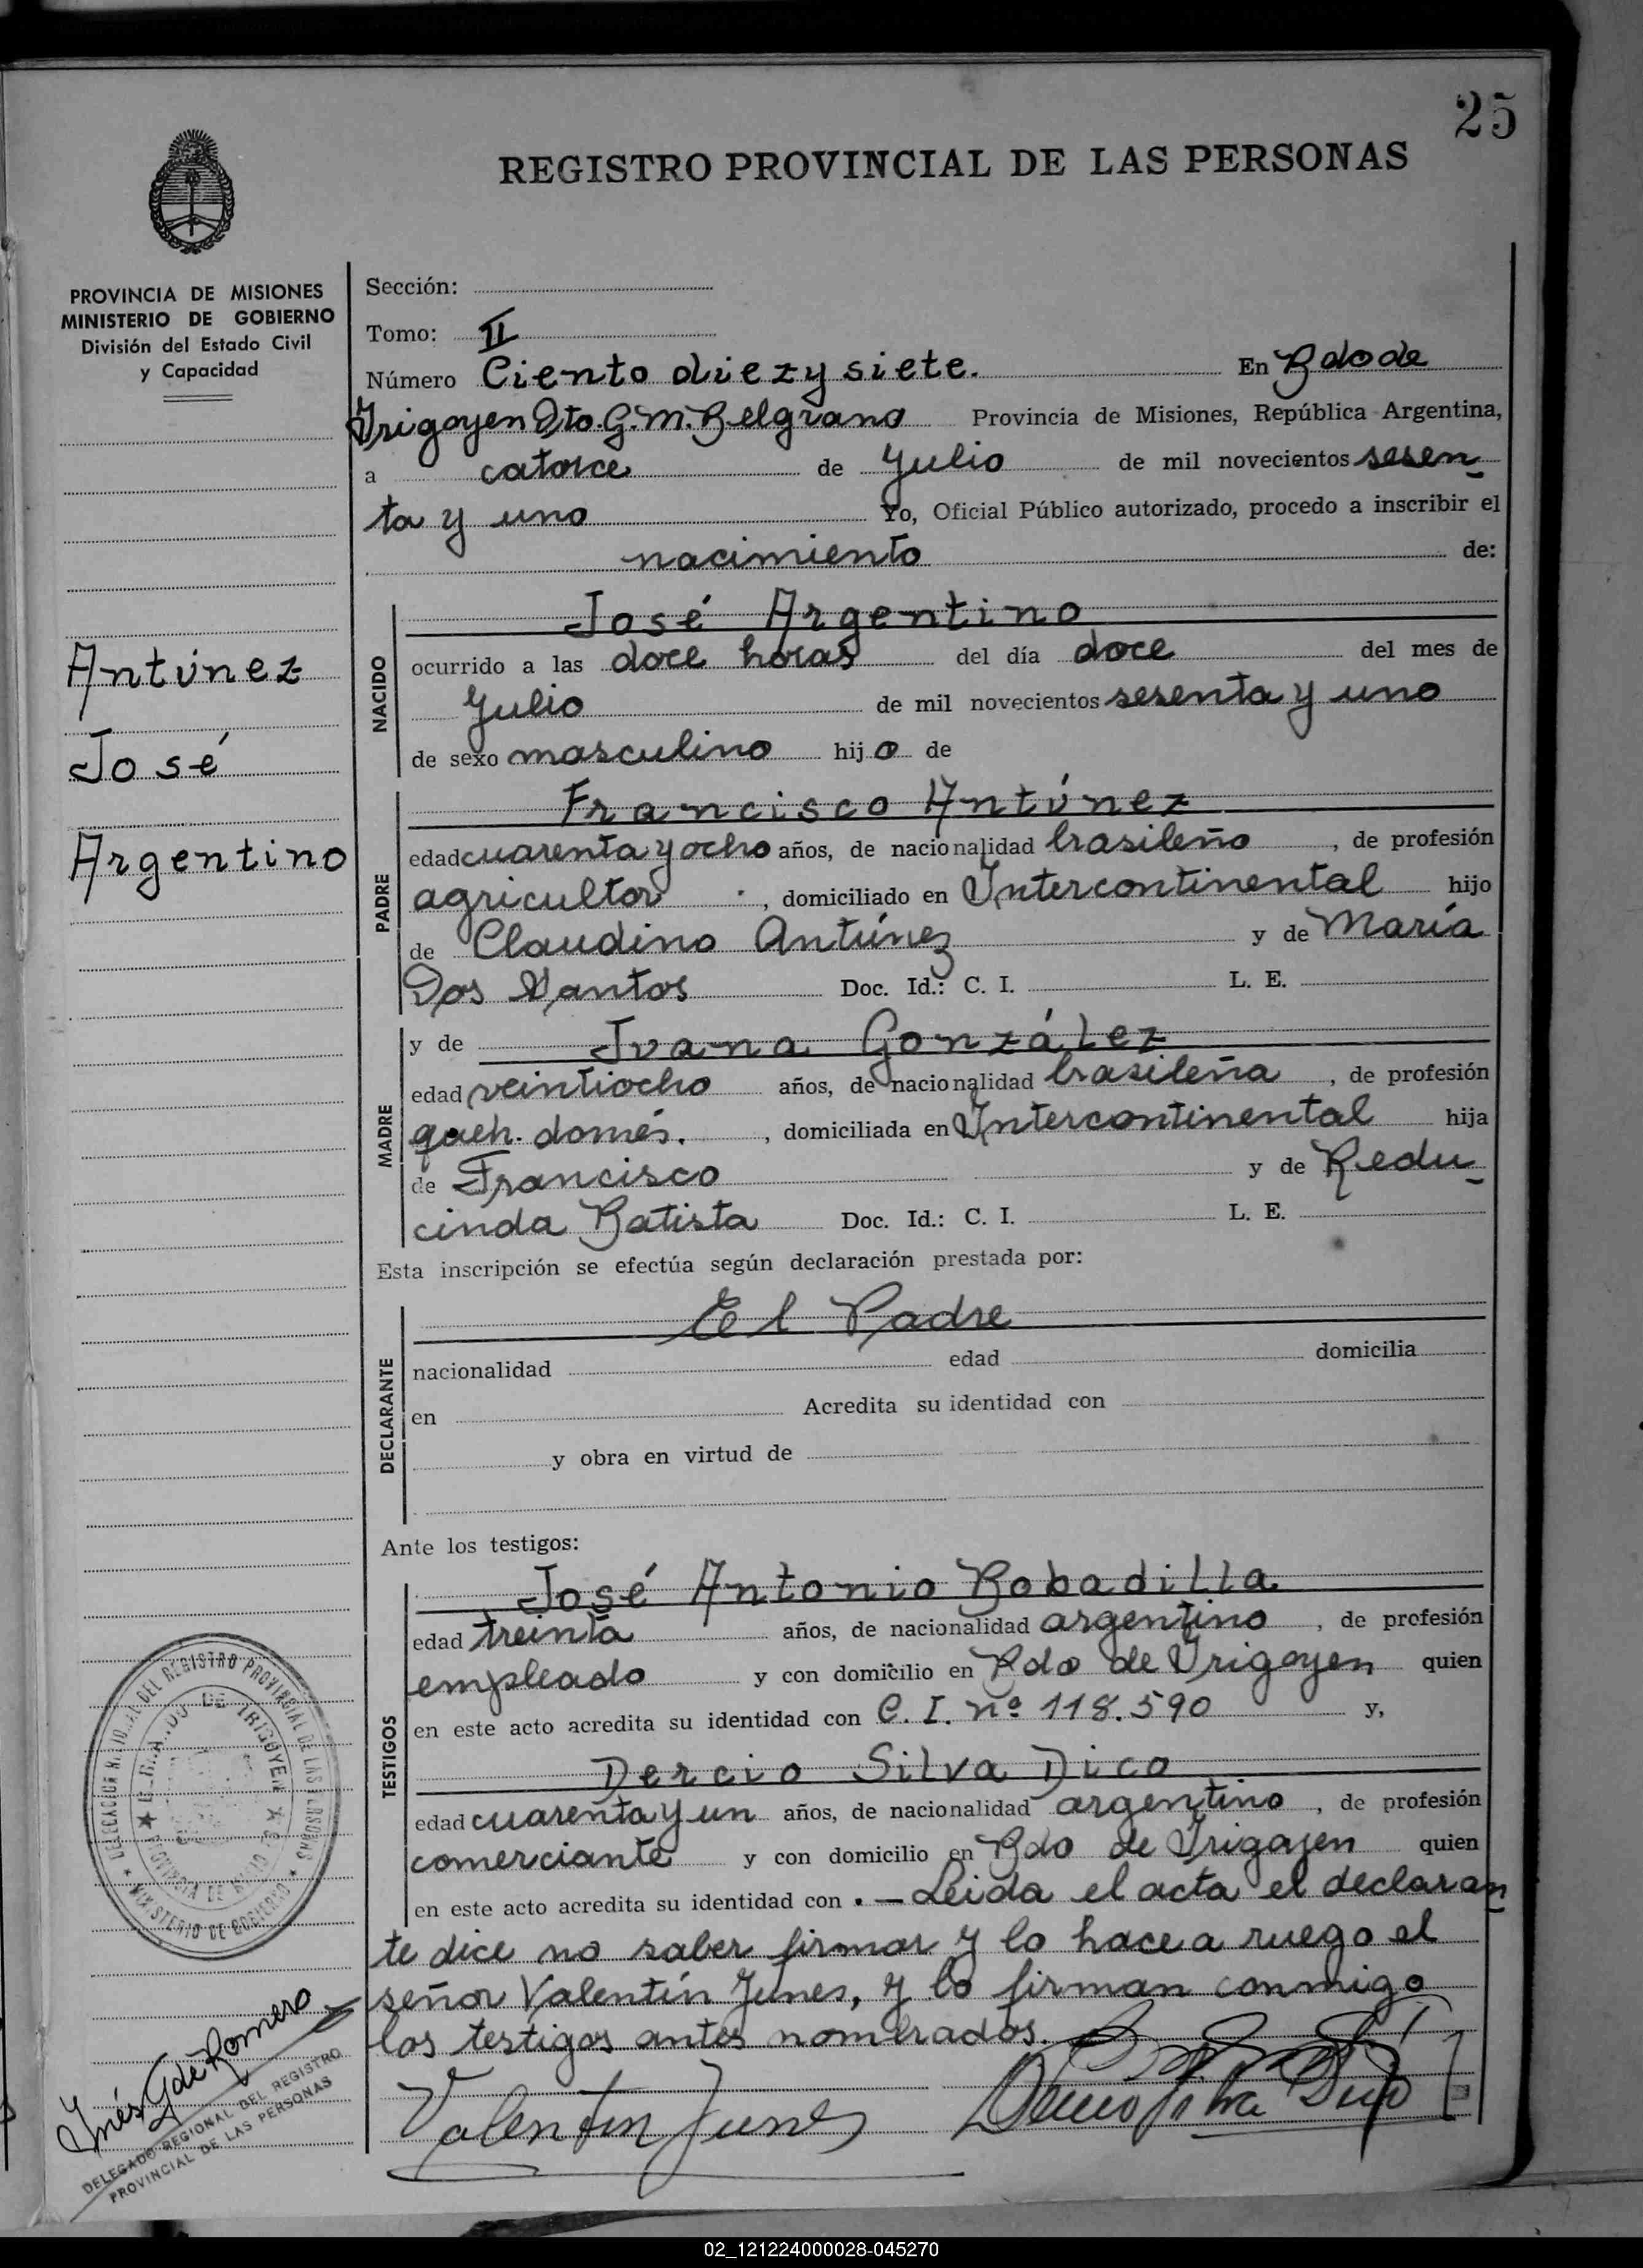 25
REGISTRO PROVINCIAL DE LAS PERSONAS
PROVINCIA DE MISIONES
MINISTERIO DE GOBIERNO
División del Estado Civil
y Capacidad
Antúnez
José
Argentino
Sección:
Tomo: II
Número Ciento diez y siete. En Bdo de
Irigoyen Dto. G. M. Belgrano Provincia de Misiones, República Argentina,
a catorce de Julio de mil novecientos sesen-
ta y uno Yo, Oficial Público autorizado, procedo a inscribir el
nacimiento de:
NACIDO
José Argentino
ocurrido a las doce horas del día doce del mes de
Julio de mil novecientos sesenta y uno
de sexo masculino hijo de
PADRE
Francisco Antúnez
edad cuarenta y ocho años, de nacionalidad brasileño, de profesión
agricultor, domiciliado en Intercontinental hijo
de Claudino Antúnez y de María
Dos Santos Doc. Id.: C. I. L. E.
MADRE
y de Juana González
edad veintiocho años, de nacionalidad brasileña, de profesión
queh. domés., domiciliada en Intercontinental hija
de Francisco y de Redu-
cinda Batista Doc. Id.: C. I. L. E.
Esta inscripción se efectúa según declaración prestada por:
DECLARANTE
El Padre
nacionalidad edad domicilia
en Acredita su identidad con
y obra en virtud de
Ante los testigos:
TESTIGOS
José Antonio Bobadilla
edad treinta años, de nacionalidad argentino, de profesión
empleado y con domicilio en Bdo de Irigoyen quien
en este acto acredita su identidad con C. I. nº 118.590 y,
Dercio Silva Dico
edad cuarenta y un años, de nacionalidad argentino, de profesión
comerciante y con domicilio en Bdo de Irigoyen quien
en este acto acredita su identidad con . — Leida el acta el declaran-
te dice no saber firmar y lo hace a ruego el
señor Valentín Junes, y lo firman conmigo
los testigos antes nombrados.
Valentin Junes
DELEGACION REGIONAL DEL REGISTRO PROVINCIAL DE LAS PERSONAS
MINISTERIO DE GOBIERNO
BERNARDO DE IRIGOYEN
PROVINCIA DE MISIONES
Inés G de Romero
DELEGADO REGIONAL DEL REGISTRO
PROVINCIAL DE LAS PERSONAS
02_121224000028-045270